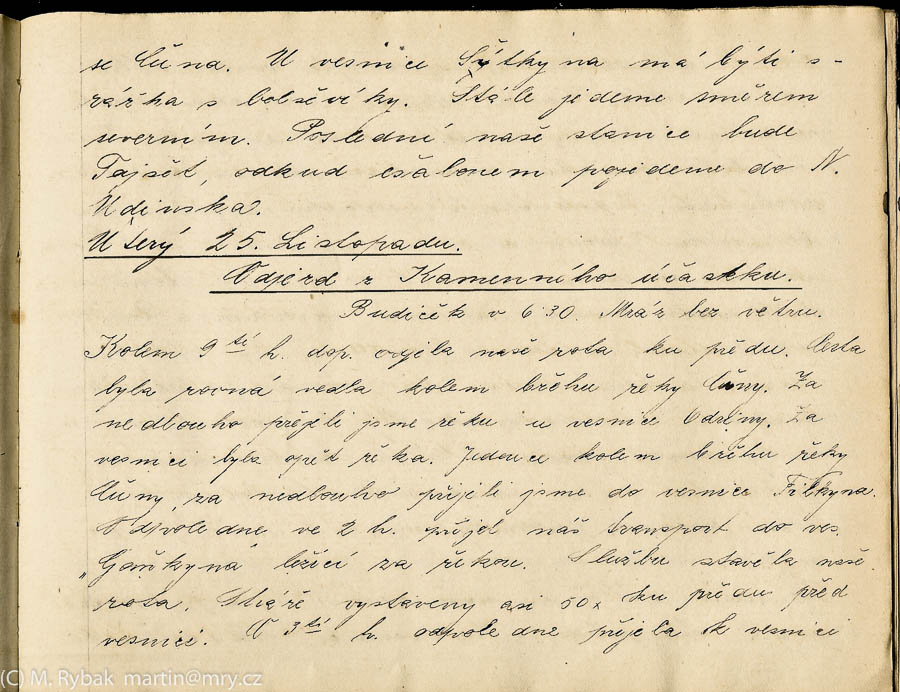 se Čuna. U vesnice Šýtkyna má býti s-
rážka s bolševíky. Stále jedeme směrem
severním. Poslední naše stanice bude
Tajšět, odkud ešalonem pojedeme do N.
Udinska.
Úterý 25. Listopadu.
Odjezd z Kamenného účastku.
Budíček v 6·30. Mráz bez větru.
Kolem 9tí h. dop. odjela naše rota ku předu. Cesta
byla rovná vedla kolem břehu řeky Čuny. Za
nedlouho přejeli jsme řeku u vesnice Odriny. Za
vesnicí byla opět řeka. Jedouce kolem břehu řeky
Čuny, za nedlouho přijeli jsme do vesnice Filkyna.
Odpoledne ve 2 h. přijel náš transport do ves.
„Gaňkyná ležící za řekou. Službu stavěla naše
rota. Stráže vystaveny asi 50x ku předu před
vesnicí. V 3tí h. odpoledne přijela k vesnici
(C) M. Rybak martin@mry.cz